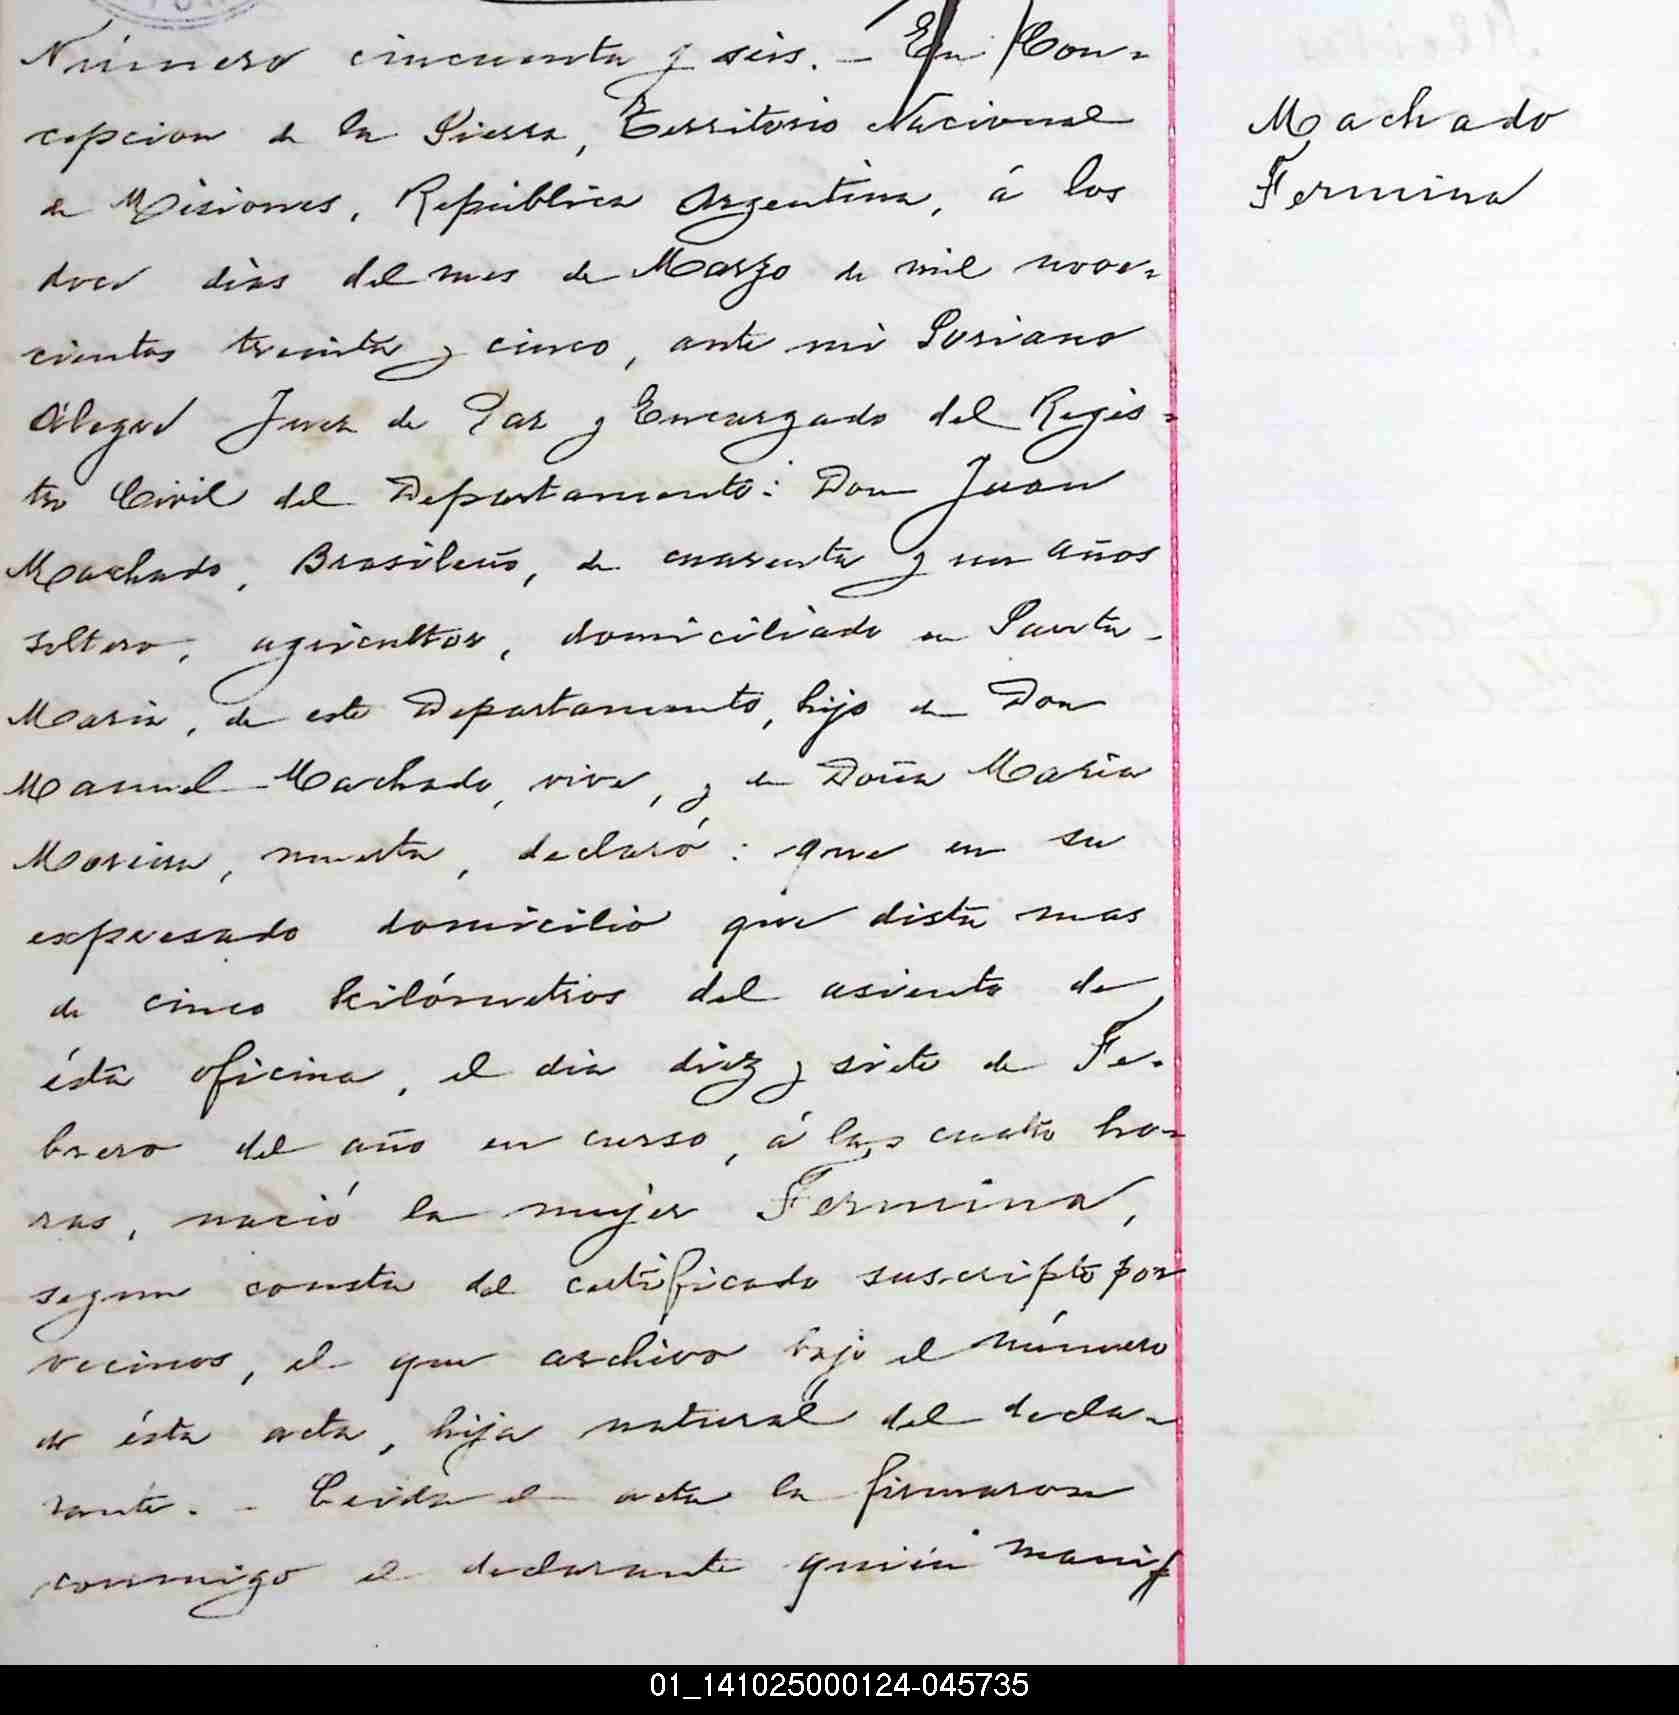 Número cincuenta y seis. — En Con-
cepcion de la Sierra, Territorio Nacional
de Misiones, República Argentina, á los
doce dias del mes de Marzo de mil nove-
cientos treinta y cinco, ante mi
Juez de Paz y Encargado del Regis-
tro Civil del Departamento: Don Juan
Machado, Brasileño, de cuarenta y un años
soltero, agricultor, domiciliado en Santa
Maria, de este Departamento, hijo de Don
Manuel Machado, vive, y de Doña Maria
Moreira, muerta, declaró: que en su
expresado domicilio que dista mas
de cinco kilómetros del asiento de
ésta oficina, el dia diez y siete de Fe-
brero del año en curso, á las cuatro ho-
ras, nació la mujer Fermina,
segun consta del certificado suscripto por
vecinos, el que archivo bajo el número
de ésta acta, hija natural del decla-
rante. - Leida el acta la firmaron
conmigo el declarante quién manif
Machado
Fermina
01_141025000124-045735